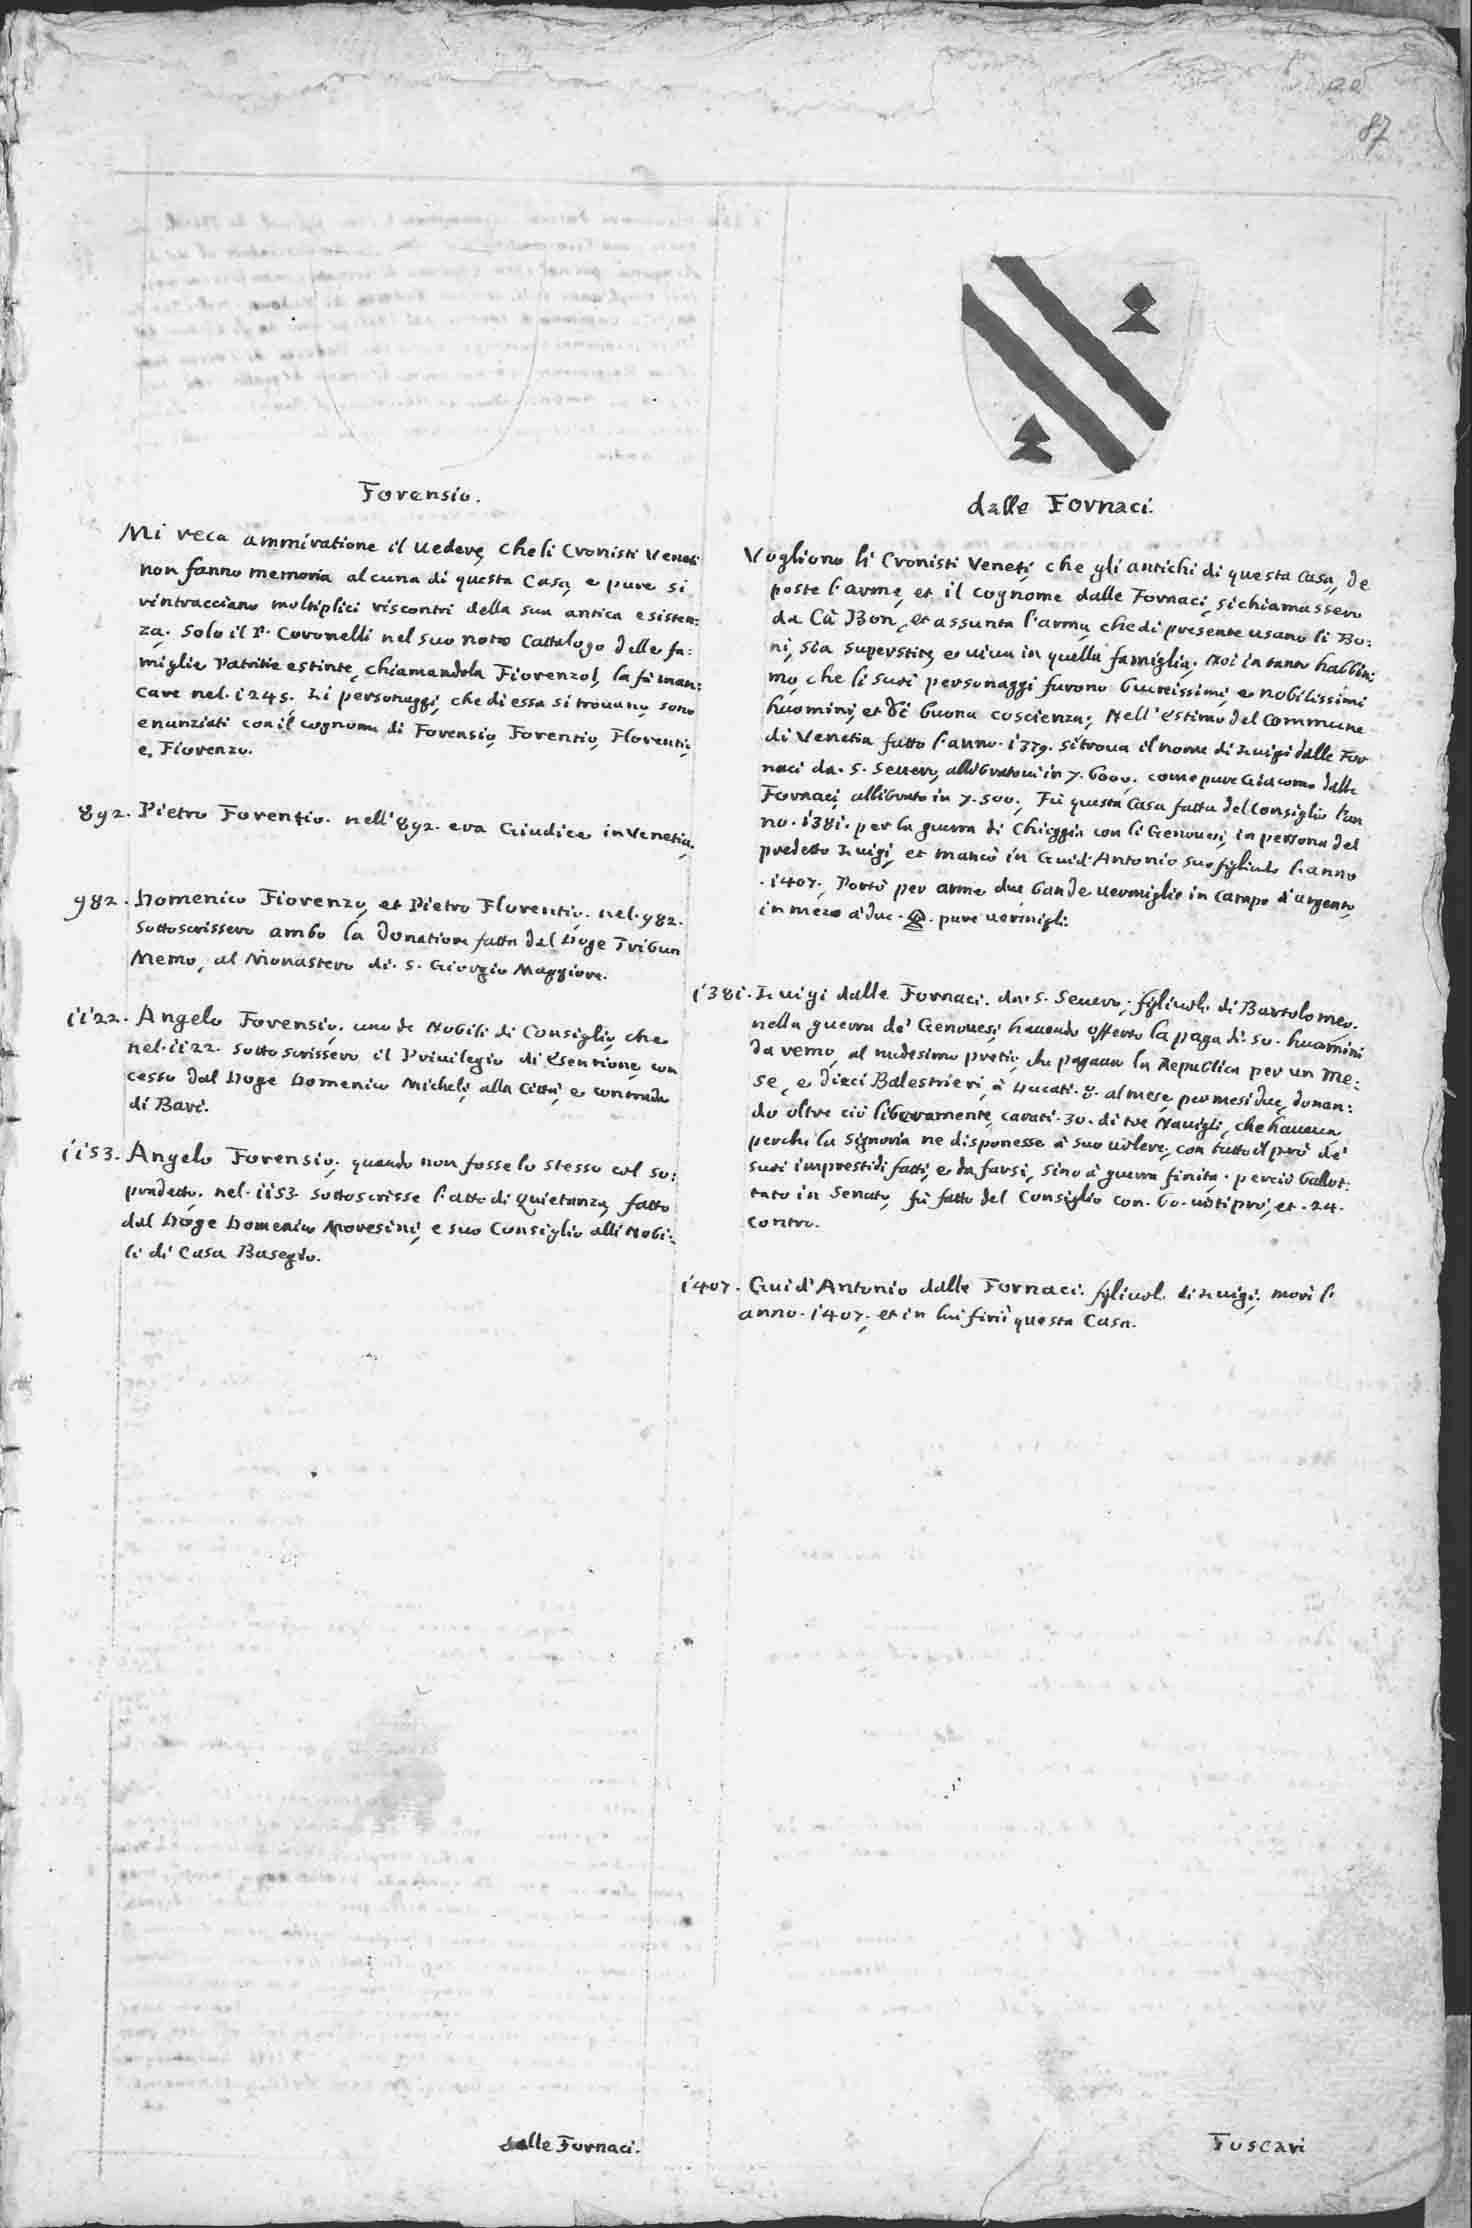 87
Forensio.
Mi reca ammiratione il uedere, che li Cronisti Veneti
non fanno memoria alcuna di questa Casa, e pure si
rintracciano moltiplici riscontri della sua antica esisten:
za. Solo il P. Coronelli nel suo noto Cattalogo delle fa:
miglie Patritie estinte, chiamandola Fiorenzol, la fà man:
care nel. 1245. Li personaggi, che di essa si trouano, sono
enunziati con il cognome di Forensio, Forentio, Florentio,
e, Fiorenzo.
892. Pietro Forentio. nell'892. era Giudice in Venetia.
982. Domenico Fiorenzo, et Pietro Florentio. nel. 982.
sottoscrissero ambo la donatione fatta dal Doge Tribun
Memo, al Monastero di. S. Giorgio Maggiore.
1122. Angelo Forensio. uno de Nobili di Consiglio, che
nel. 1122. sottoscrissero il Priuilegio di Esentione, con
cesso dal Doge Domenico Micheli, alla Città, e contrada
di Bari.
1153. Angelo Forensio, quando non fosse lo stesso col so:
pradetto. nel. 1153. sottoscrisse l'atto di Quietanza, fatto
dal Doge Domenico Moresini, e suo Consiglio alli Nobi:
li di Casa Basegio.
dalle Fornaci.
dalle Fornaci.
Vogliono li Cronisti Veneti, che gli antichi di questa Casa, de
poste l'arme, et il cognome dalle Fornaci, si chiamassero
da Cà Bon, et assunta l'arma, che di presente usano li Bo:
ni, sia superstite, e uiua in quella famiglia. Noi in tanto habbia:
mo, che li suoi personaggi furono buonissimi, e nobilissimi
huomini, et di buona coscienza; Nell'estimo del Commune
di Venetia fatto l'anno. 1379. si troua il nome di Luigi dalle For
naci da. S. Seuero, allibratoui in 7. 600, come pure Giacomo dalle
Fornaci, allibrato in 7. 500. Fù questa Casa fatta del Consiglio l'an
no. 1381. per la guerra di Chioggia con li Genouesi, in persona del
predetto Luigi, et mancò in Guid'Antonio suo figliolo l'anno
. 1407. Portò per arme due bande uermiglie in campo d'argento,
in mezo à due . pure uermigli.
1381. Luigi dalle Fornaci. da. S. Seuero, figliuolo di Bartolomeo.
nella guerra de' Genouesi, hauendo offerto la paga di. 50. huomini
da remo, al medesimo pretio, che pagaua la Republica per un me:
se, e dieci Balestrieri, à Ducati. 8. al mese, per mesi due, donan:
do oltre ciò liberamente, carati. 30. di tre Nauigli, che haueua
perche la Signoria ne disponesse à suo uolere, con tutto il prò de'
suoi imprestidi fatti, e da farsi, sino à guerra finita. perciò ballot:
tato in Senato, fù fatto del Consiglio con. 60. uoti prò, et. 24.
contro.
1407. Guid'Antonio dalle Fornaci. figliuol. di Luigi, morì l'
anno. 1407. et in lui finì questa Casa.
Foscari